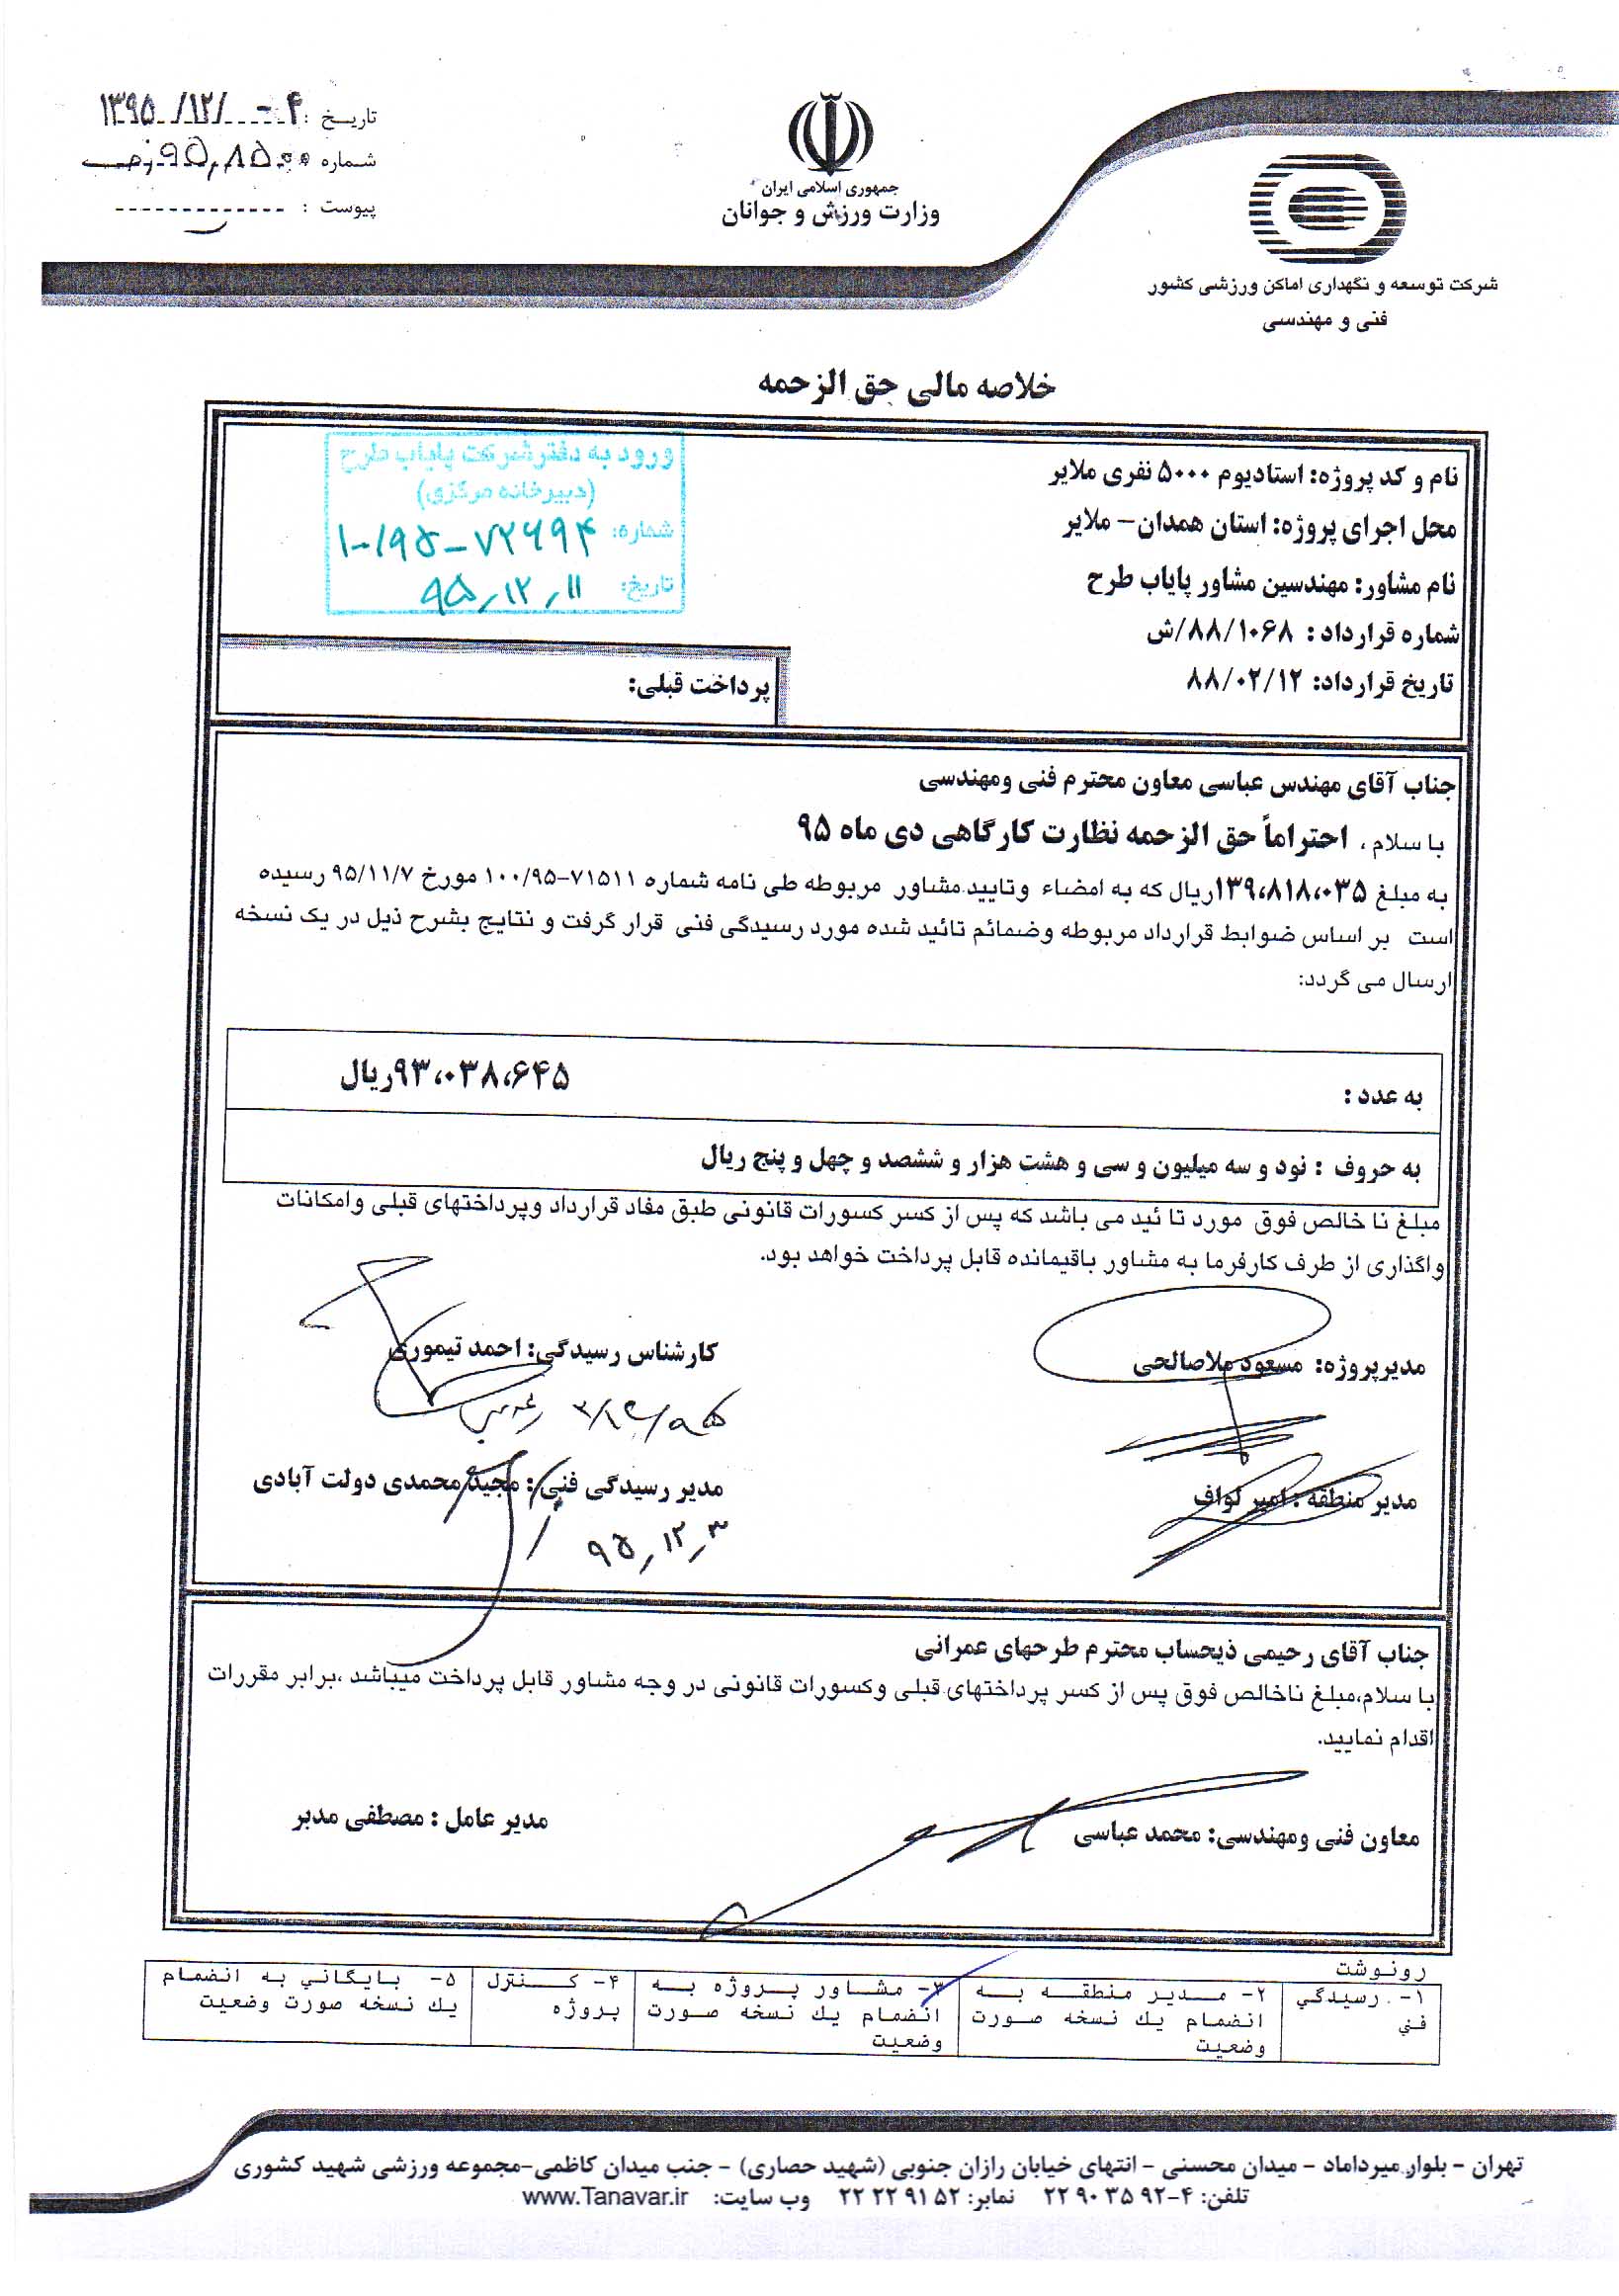 تاریخ : ۱۳۹۵/۱۲/۰۴
شماره
پیوست :
جمهوری اسلامی ایران
وزارت ورزش و جوانان
شرکت توسعه و نگهداری اماکن ورزشی کشور
فنی و مهندسی
خلاصه مالی حق الزحمه
نام و کد پروژه: استادیوم ۵۰۰۰ نفری ملایر
محل اجرای پروژه: استان همدان- ملایر
نام مشاور: مهندسین مشاور پایاب طرح
شماره قرارداد : ۸۸/۱۰۶۸/ش
تاریخ قرارداد: ۸۸/۰۲/۱۲
ورود به دفتر شرکت پایاب طرح
(دبیرخانه مرکزی)
شماره: ۱۰۰/۹۵-۷۲۶۹۴
تاریخ: ۹۵,۱۲,۱۱
پرداخت قبلی:
جناب آقای مهندس عباسی معاون محترم فنی ومهندسی
با سلام ، احتراماً حق الزحمه نظارت کارگاهی دی ماه ۹۵
به مبلغ ۱۳۹،۸۱۸،۰۳۵ریال که به امضاء وتایید مشاور مربوطه طی نامه شماره ۷۱۵۱۱-۱۰۰/۹۵ مورخ ۹۵/۱۱/۷ رسیده
است بر اساس ضوابط قرارداد مربوطه وضمائم تائید شده مورد رسیدگی فنی قرار گرفت و نتایج بشرح ذیل در یک نسخه
ارسال می گردد:
به عدد : ۹۳،۰۳۸،۶۴۵ریال
به حروف : نود و سه میلیون و سی و هشت هزار و ششصد و چهل و پنج ریال
مبلغ نا خالص فوق مورد تا ئید می باشد که پس از کسر کسورات قانونی طبق مفاد قرارداد وپرداختهای قبلی وامکانات
واگذاری از طرف کارفرما به مشاور باقیمانده قابل پرداخت خواهد بود.
مدیرپروژه: مسعود ملاصالحی
کارشناس رسیدگی: احمد تیموری
۹۵/۱۲/۳
مدیر منطقه : امیر لواف
مدیر رسیدگی فنی : مجید محمدی دولت آبادی
۹۵,۱۲,۳
جناب آقای رحیمی ذیحساب محترم طرحهای عمرانی
با سلام،مبلغ ناخالص فوق پس از کسر پرداختهای قبلی وکسورات قانونی در وجه مشاور قابل پرداخت میباشد ،برابر مقررات
اقدام نمایید.
معاون فنی ومهندسی: محمد عباسی
مدیر عامل : مصطفی مدبر
رونوشت
۱- رسیدگي
فني
۲- مدیر منطقه به
انضمام یك نسخه صورت
وضعیت
۳- مشاور پروژه به
انضمام یك نسخه صورت
وضعیت
۴- کنترل
پروژه
۵- بایگاني به انضمام
یك نسخه صورت وضعیت
تهران - بلوار میرداماد - میدان محسنی - انتهای خیابان رازان جنوبی (شهید حصاری) - جنب میدان کاظمی-مجموعه ورزشی شهید کشوری
تلفن: ۴-۹۲ ۳۵ ۹۰ ۲۲ نمابر: ۵۲ ۹۱ ۲۲ ۲۲ وب سایت: www.Tanavar.ir